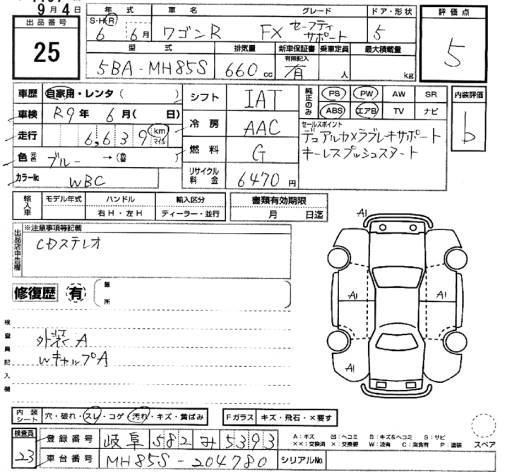 9月4日
出品番号
25
年式
S・H・R
6年 6月
車名
ワゴンR
グレード
FX セーフティサポート
ドア・形状
5
評価点
5
型式
5BA-MH85S
排気量
660 cc
新車保証書
有効記入
有
乗車定員
人
最大積載量
kg
車歴 自家用・レンタ( )
車検 R9年 6月( 日)
走行 6,639 km マイル
色 元色 ブルー →(色 )
カラーNo WBC
シフト IAT
冷房 AAC
燃料 G
リサイクル料金 6470円
純正のみ
PS PW AW SR
ABS エアB TV ナビ
セールスポイント
デュアルカメラブレーキサポート
キーレスプッシュスタート
内装評価
b
輸入車
モデル年式 ハンドル 輸入区分
右H・左H ディーラー・並行
書類有効期限
月 日迄
出品店申告欄
※注意事項等記載
CDステレオ
修復歴 有
箇所
検査員記入欄
外装A
WキャルプA
A1
A1 A1
A1
内装シート
穴・破れ・スレ・コゲ・汚れ・キズ・黄ばみ
Fガラス キズ・飛石・×要す
スペア
検査員
23
登録番号 岐阜 582 み 5393
車台番号 MH85S-204780
シリアルNo
A:キズ 凹:ヘコミ B:キズ&ヘコミ S:サビ
××:交換済 ×:交換要 W:波有 C:腐食有 P:塗装